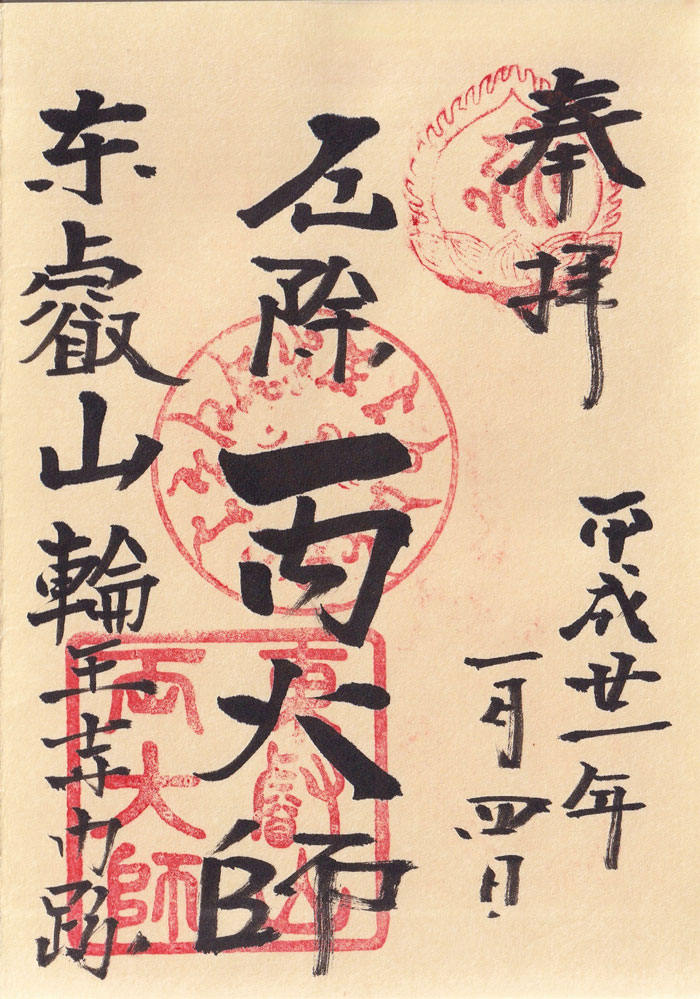 奉拝
平成廿一年
一月四日
厄除両大師
東叡山輪王寺門跡
東叡山
両大師